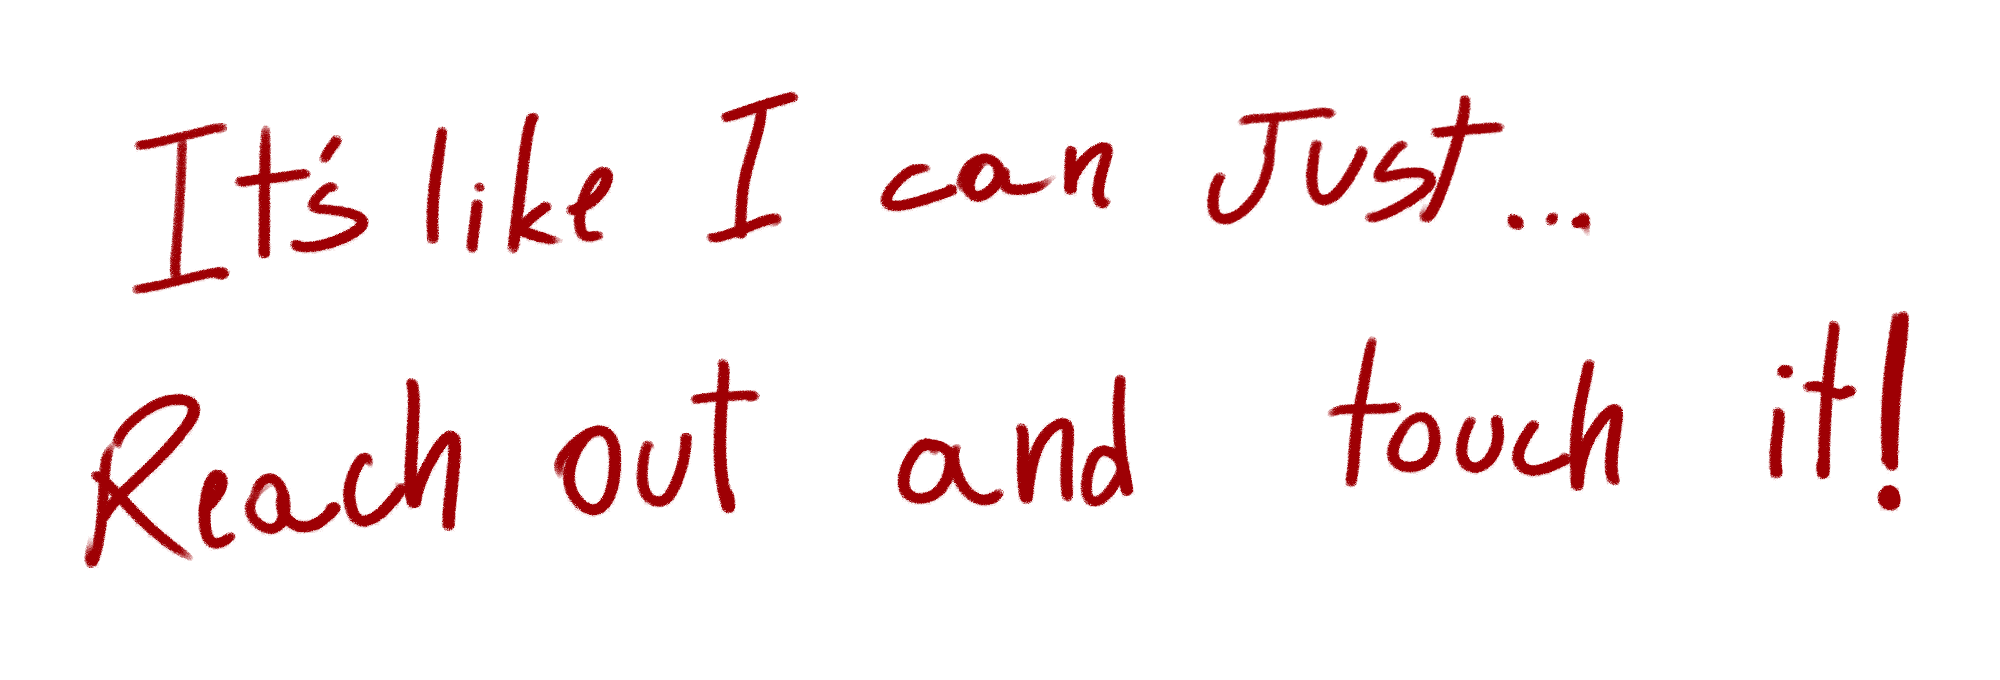 It's like I can Just...
Reach out and touch it!